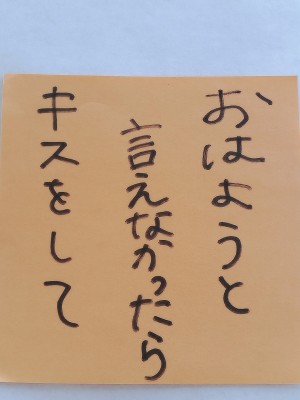 おはようと
言えなかったら
キスをして